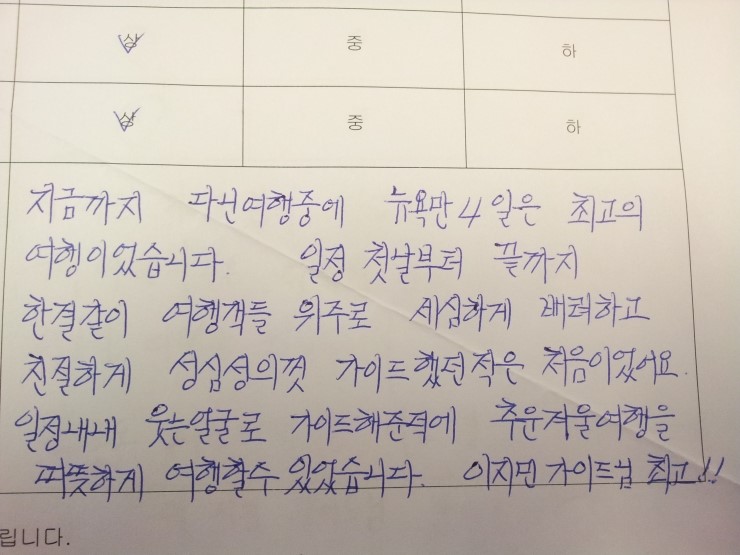 상 중 하
상 중 하
지금까지 다닌여행중에 뉴욕만4일은 최고의
여행이었습니다. 일정 첫날부터 끝까지
한결같이 여행객들 위주로 세심하게 배려하고
친절하게 성심성의껏 가이드했던적은 처음이었어요.
일정내내 웃는얼굴로 가이드해준덕에 추운겨울여행을
따뜻하게 여행할수 있었습니다. 이지민 가이드님 최고!!
립니다.